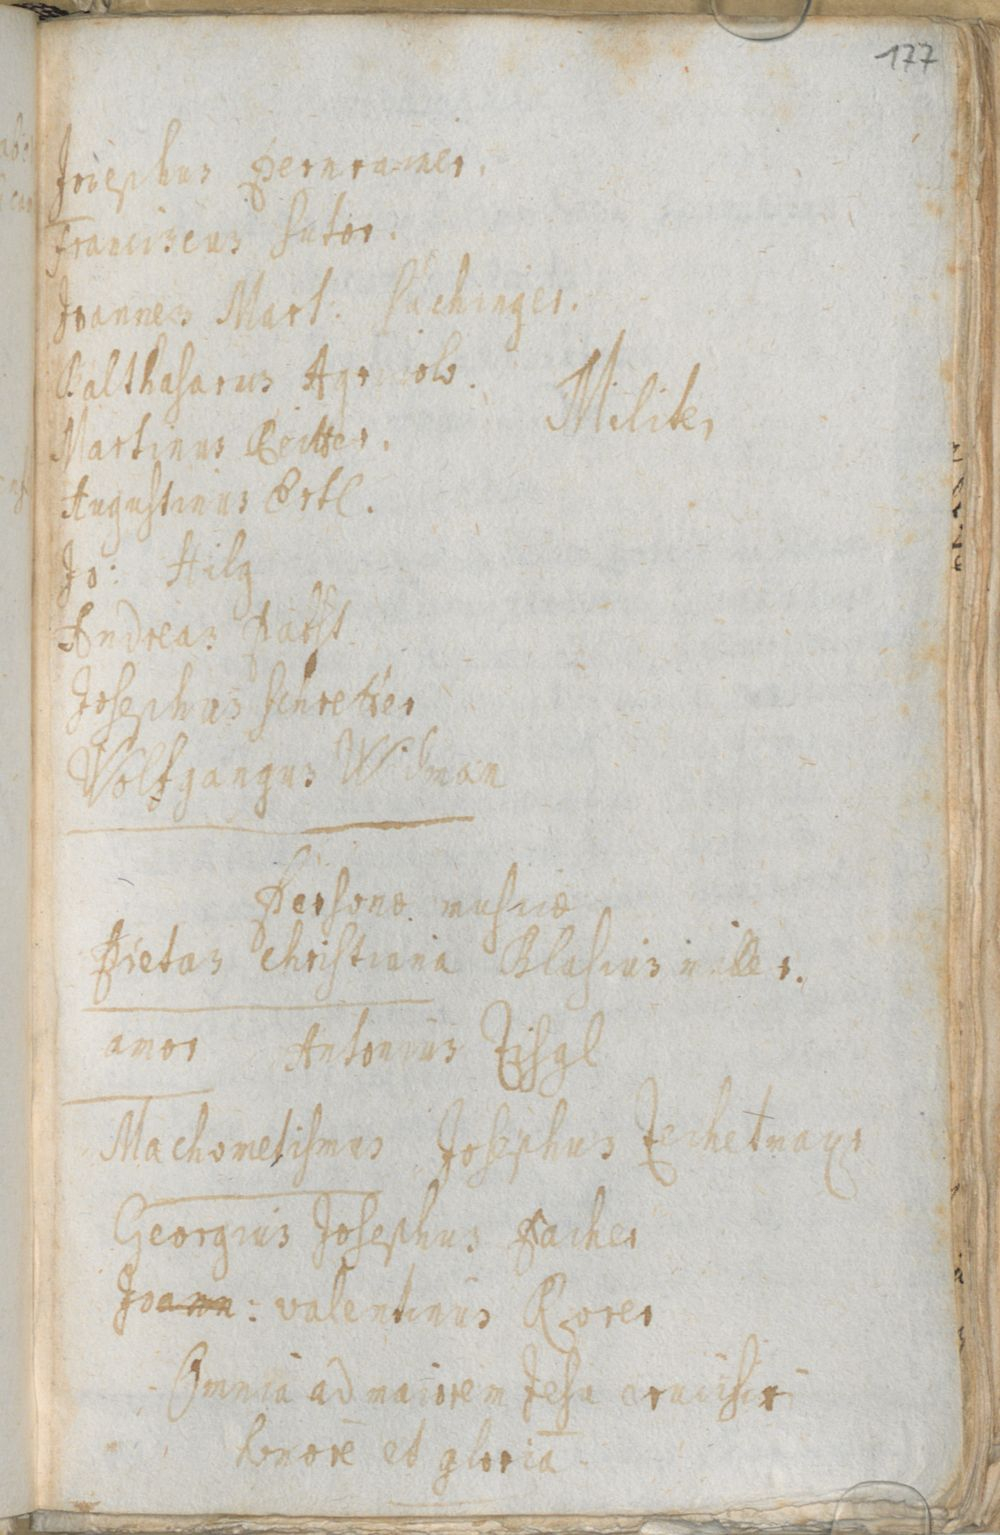 177
Josephus Pernrainer.
Franciscus Sutor.
Joannes Mart. Puchinger.
Balthasarus Agricola.
Milites
Martinus Reitter.
Augustinus Ertl.
Jo: Hilg
Andreas Pabst
Josephus Schretter
Wolfgangus Widman
Personæ musicæ
Pietas christiana Blasius miller.
amor Antonius Zisgl
Machometismus Josephus Zechetmayr
Georgius Josephus Pacher
Joann: valentinus Rorer
Omnia ad maiorem Jesu crucifixi
honorē et gloriā